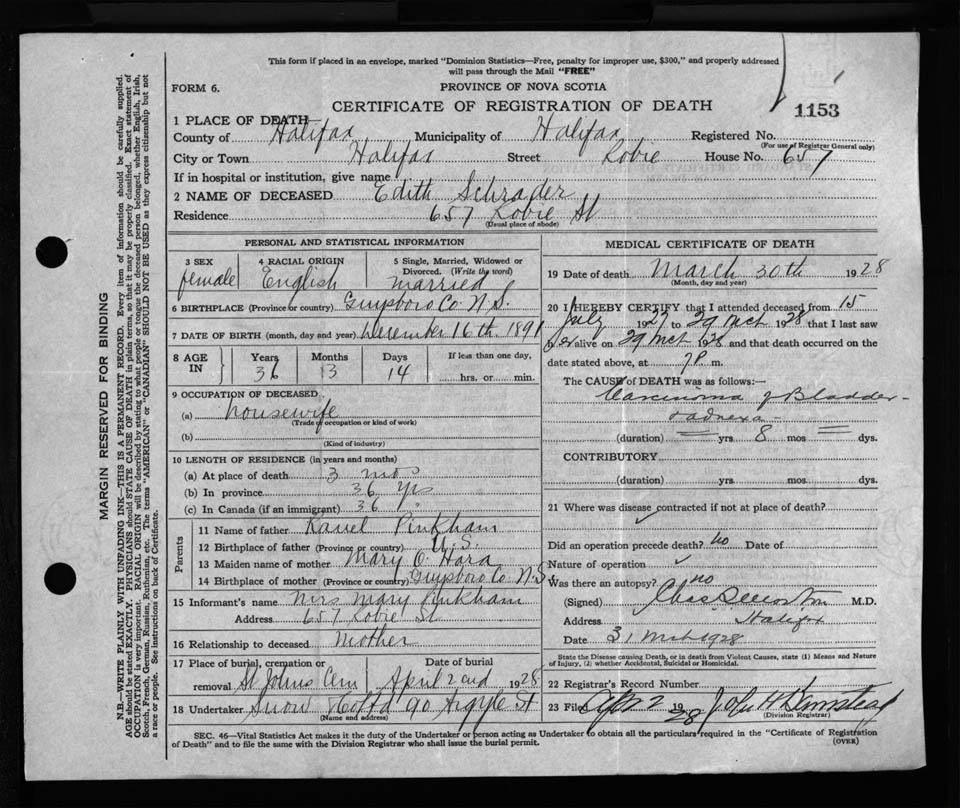 This form if placed in an envelope, marked "Dominion Statistics—Free, penalty for improper use, $300," and properly addressed
will pass through the Mail "FREE"
FORM 6.
PROVINCE OF NOVA SCOTIA
CERTIFICATE OF REGISTRATION OF DEATH
1153
1 PLACE OF DEATH
County of Halifax Municipality of Halifax Registered No.
(For use of Registrar General only)
City or Town Halifax Street Robie House No. 657
If in hospital or institution, give name
2 NAME OF DECEASED Edith Schrader
Residence 657 Robie St
(Usual place of abode)
PERSONAL AND STATISTICAL INFORMATION
3 SEX female
4 RACIAL ORIGIN English
5 Single, Married, Widowed or Divorced. (Write the word) married
6 BIRTHPLACE (Province or country) Guysboro Co. N.S.
7 DATE OF BIRTH (month, day and year) December 16th 1891
8 AGE IN Years Months Days If less than one day,
36 3 14 hrs. or min.
9 OCCUPATION OF DECEASED
(a) housewife
(Trade of occupation or kind of work)
(b)
(Kind of industry)
10 LENGTH OF RESIDENCE (in years and months)
(a) At place of death 3 mos
(b) In province 36 yrs
(c) In Canada (if an immigrant) 36 "
Parents
11 Name of father Pinkham
12 Birthplace of father (Province or country) U.S.
13 Maiden name of mother Mary O'Hara
14 Birthplace of mother (Province or country) Guysboro Co. N.S
15 Informant's name Mrs Mary Pinkham
Address 657 Robie St
16 Relationship to deceased Mother
17 Place of burial, cremation or removal St Johns Cem
Date of burial April 2nd 1928
18 Undertaker Snow & Co Ltd 90 Argyle St
(Name and address)
MEDICAL CERTIFICATE OF DEATH
19 Date of death March 30th 1928
(Month, day and year)
20 I HEREBY CERTIFY that I attended deceased from 15
July 1927 to 29 Mch 1928 that I last saw
her alive on 29 Mch 1928 and that death occurred on the
date stated above, at 7 P. m.
The CAUSE of DEATH was as follows:—
Carcinoma of Bladder -
+ adnexa -
(duration) = yrs 8 mos = dys.
CONTRIBUTORY
(duration) yrs. mos. dys.
21 Where was disease contracted if not at place of death?
Did an operation precede death? no Date of
Nature of operation
Was there an autopsy? no
(Signed) M.D.
Address Halifax
Date 31 Mch 1928
State the Disease causing Death, or in death from Violent Causes, state (1) Means and Nature of Injury, (2) whether Accidental, Suicidal or Homicidal.
22 Registrar's Record Number
23 Filed Apr 2 1928 John H
(Division Registrar)
SEC. 46—Vital Statistics Act makes it the duty of the Undertaker or person acting as Undertaker to obtain all the particulars required in the "Certificate of Registration
of Death" and to file the same with the Division Registrar who shall issue the burial permit.
(OVER)
MARGIN RESERVED FOR BINDING
N.B.—WRITE PLAINLY WITH UNFADING INK—THIS IS A PERMANENT RECORD. Every item of information should be carefully supplied.
AGE should be stated EXACTLY. PHYSICIANS should STATE CAUSE OF DEATH in plain terms, so that it may be properly classified. Exact statement of
OCCUPATION is very important. RACIAL ORIGIN will be described by stating to what people or tongue the deceased person belonged, whether English, Irish,
Scotch, French, German, Russian, Ruthenian, etc. The terms "AMERICAN" or "CANADIAN" SHOULD NOT BE USED as they express citizenship but not
a race or people. See instructions on back of Certificate.